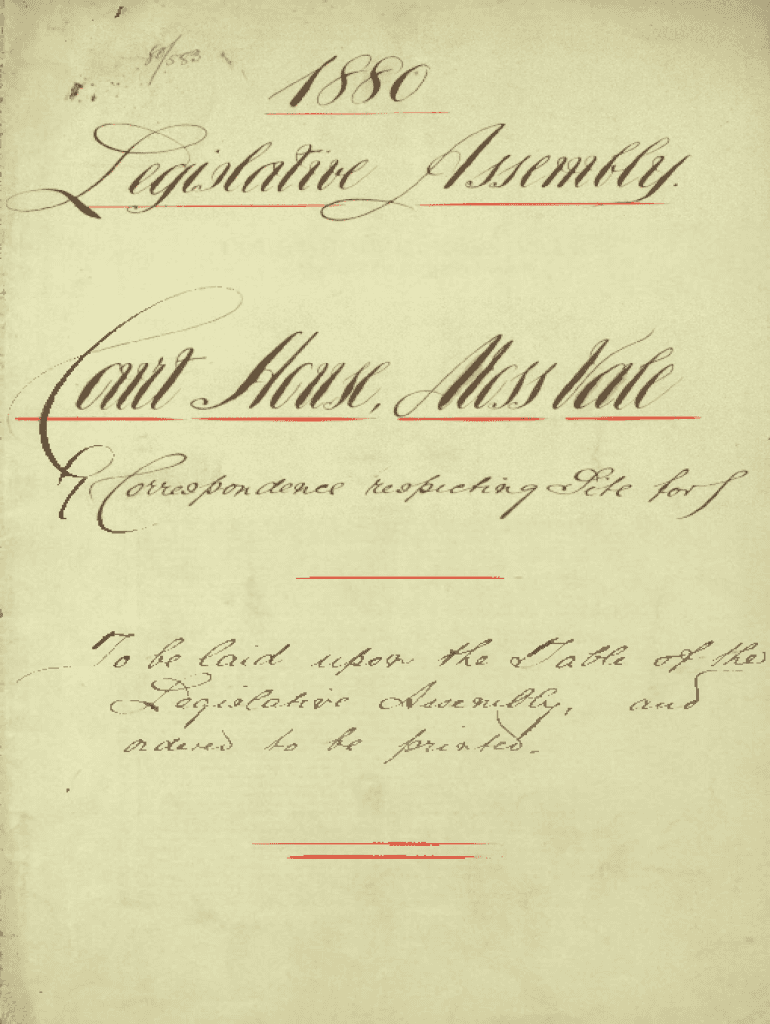 80/583
1880
Legislative Assembly.
Court House, Moss Vale
(Correspondence respecting Site for)
To be laid upon the Table of the
Legislative Assembly, and
ordered to be printed.